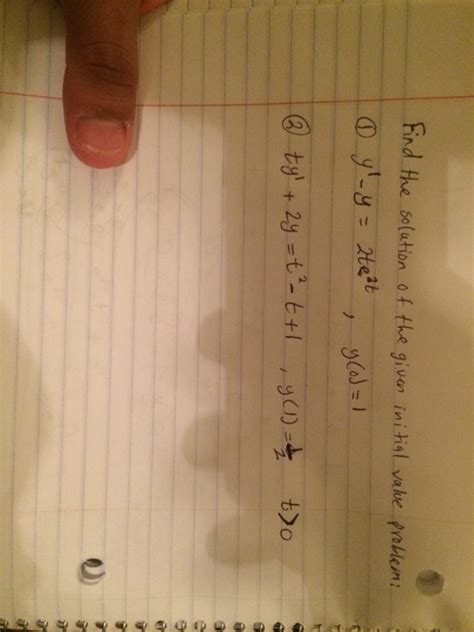 Find the solution of the given initial value problem:
① y' - y = 2te²ᵗ , y(0) = 1
② ty' + 2y = t² - t + 1 , y(1) = 1/2 t > 0